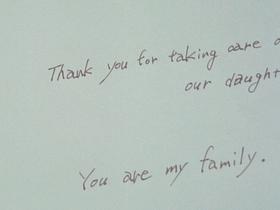 Thank you for taking care
our
You are my family.